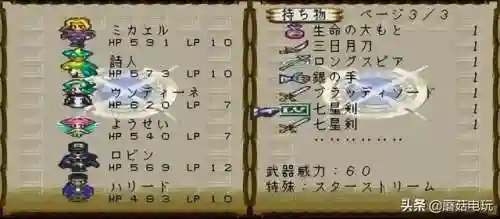 ミカエル
HP 591 LP 10
詩人
HP 573 LP 10
ウンディーネ
HP 620 LP 7
ようせい
HP 540 LP 7
ロビン
HP 569 LP 12
ハリード
HP 483 LP 10
持ち物 ページ3/3
生命の大もと 1
三日月刀 1
ロングスピア 1
銀の手 1
ブラッディソード 1
七星剣 1
七星剣 1
‥‥‥‥‥‥‥‥
武器威力:60
特殊:スターストリーム
头条 @蘑菇电玩